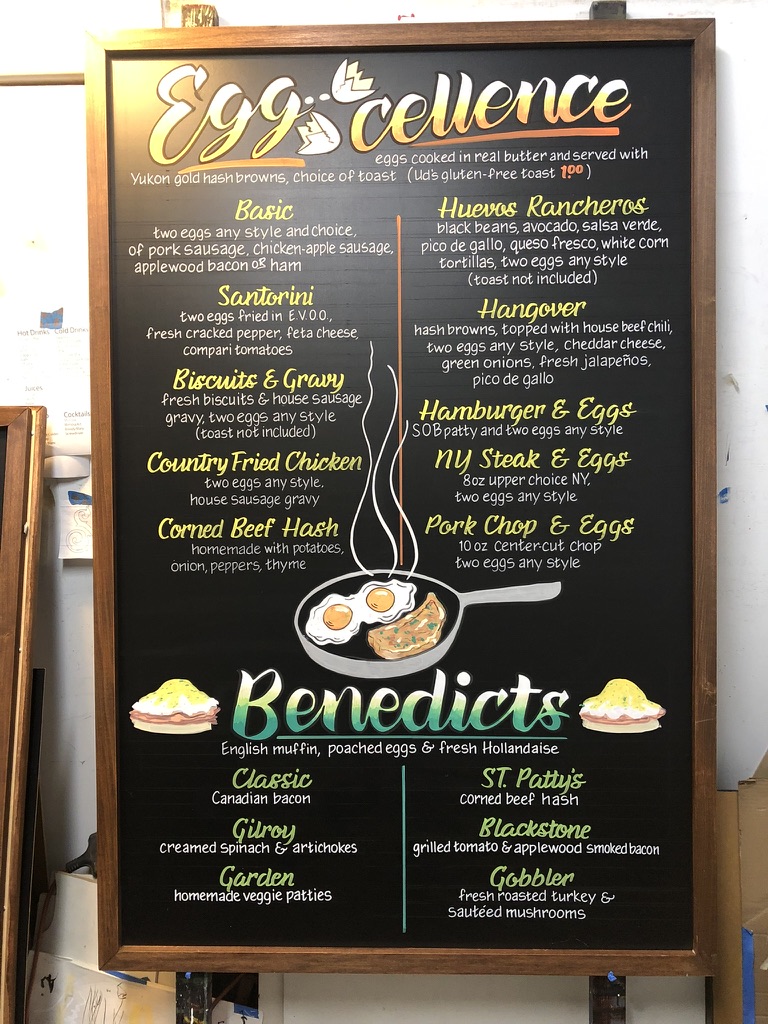 Egg cellence
eggs cooked in real butter and served with
Yukon gold hash browns, choice of toast (Udi's gluten-free toast 1.00)
Basic
two eggs any style and choice,
of pork sausage, chicken-apple sausage,
applewood bacon or ham
Santorini
two eggs fried in E.V.O.O.,
fresh cracked pepper, feta cheese,
compari tomatoes
Biscuits & Gravy
fresh biscuits & house sausage
gravy, two eggs any style
(toast not included)
Country Fried Chicken
two eggs any style,
house sausage gravy
Corned Beef Hash
homemade with potatoes,
onion, peppers, thyme
Huevos Rancheros
black beans, avocado, salsa verde,
pico de gallo, queso fresco, white corn
tortillas, two eggs any style
(toast not included)
Hangover
hash browns, topped with house beef chili,
two eggs any style, cheddar cheese,
green onions, fresh jalapeños,
pico de gallo
Hamburger & Eggs
SOB patty and two eggs any style
NY Steak & Eggs
8oz upper choice NY,
two eggs any style
Pork Chop & Eggs
10 oz center-cut chop
two eggs any style
Benedicts
English muffin, poached eggs & fresh Hollandaise
Classic
Canadian bacon
Gilroy
creamed spinach & artichokes
Garden
homemade veggie patties
ST. Patty's
corned beef hash
Blackstone
grilled tomato & applewood smoked bacon
Gobbler
fresh roasted turkey &
sautéed mushrooms
Hot Drinks Cold Drinks
Juices
Cocktails